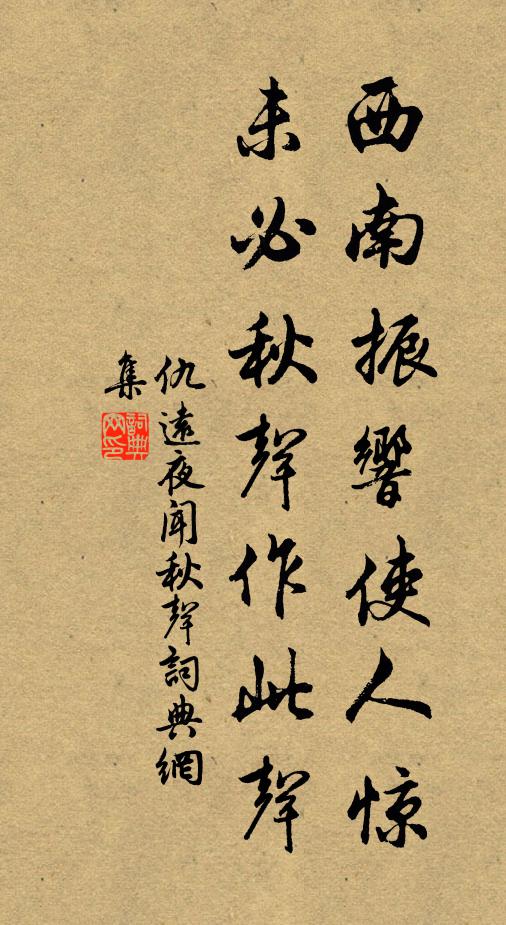 西南振響使人惊
未必秋聲作此聲
仇遠夜聞秋聲詞典網
集
詞典网印